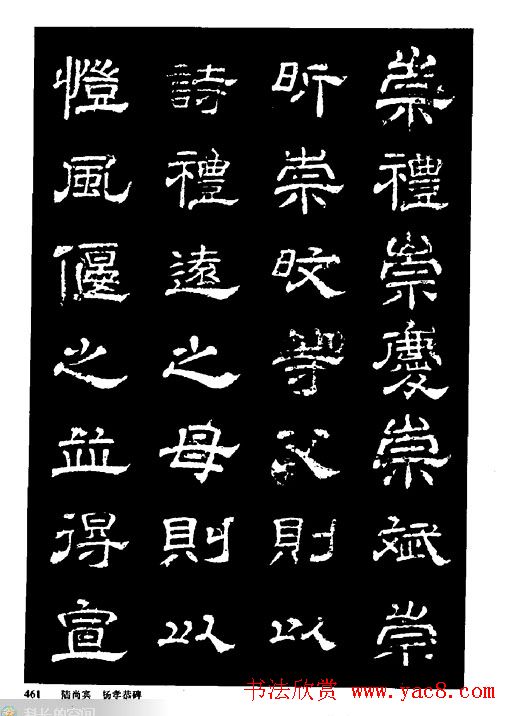 崇禮崇慶崇斌崇
昕崇旼等父則以
詩禮遠之母則以
愷風偃之益得宣
461 陆尚宾 杨孝恭碑
书法欣赏 www.yac8.com
科长的空间